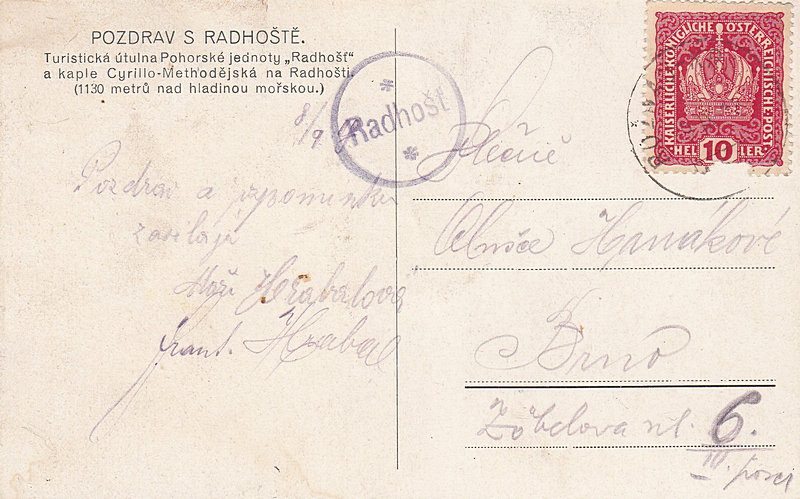 POZDRAV S RADHOŠTĚ.
Turistická útulna Pohorské jednoty „Radhošť“
a kaple Cyrillo-Methodějská na Radhošti.
(1130 metrů nad hladinou mořskou.)
* Radhošť *
8/9
Pozdrav a vzpomínku
zasílají
Hrabalová
Frant. Hrabal
KAISERLICHE KÖNIGLICHE ÖSTERREICHISCHE POST
HELLER
10
Slečně
Hanákové
Brno
ul. 6.
III. posch